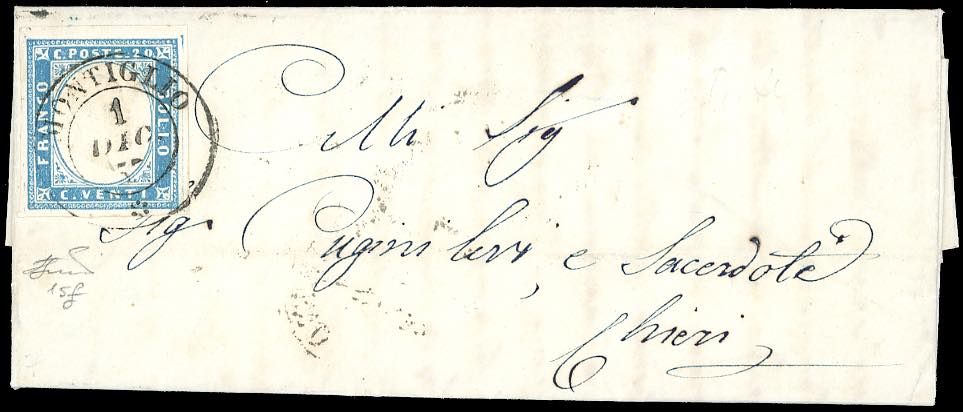 C. POSTE. 20
FRANCO
BOLLO
C. VENTI
MONTIGLIO
1
DIC
57
Alli Sig
Sigr Pugini Levi, e Sacerdote
Chieri
15f